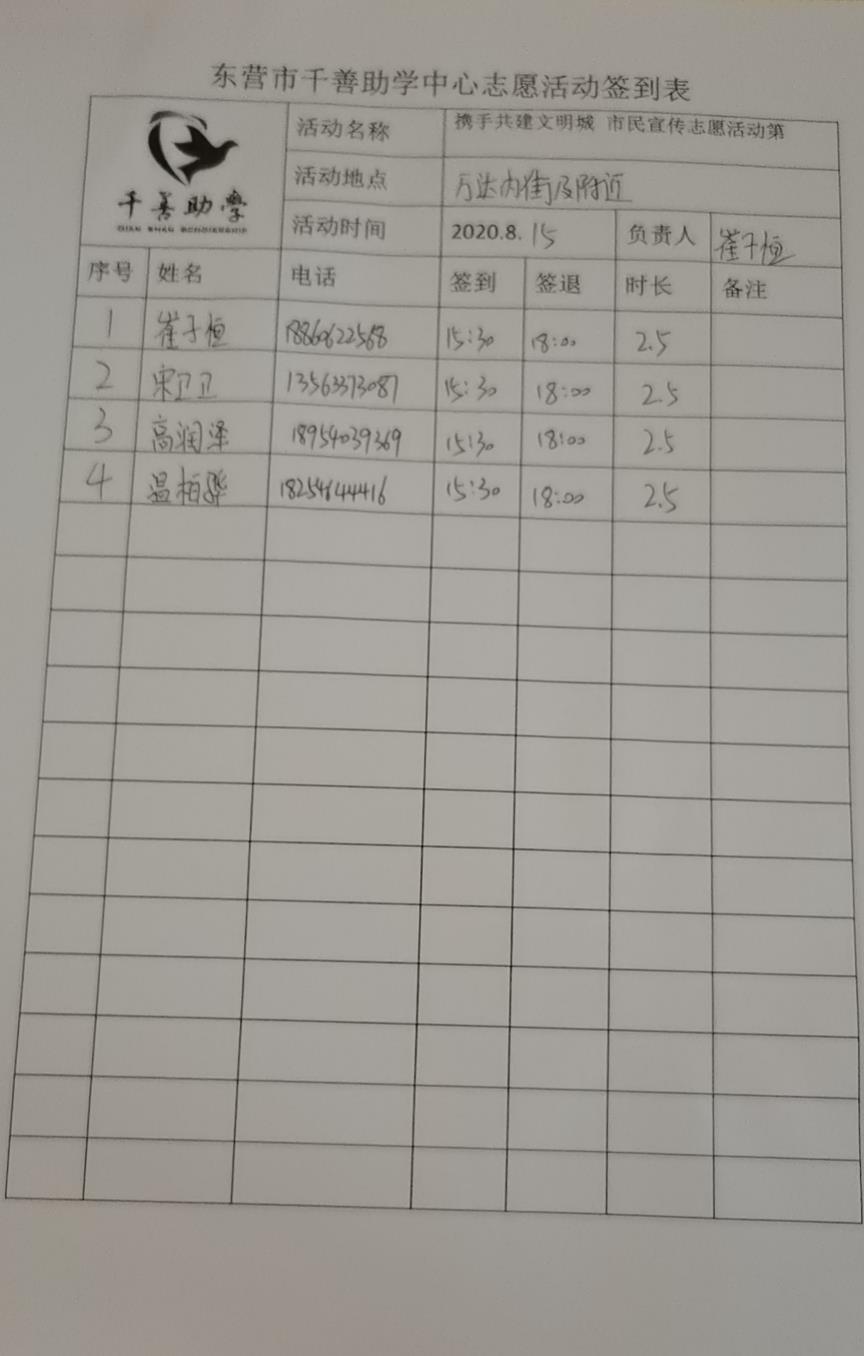 东营市千善助学中心志愿活动签到表
千善助学
QIAN SHAN SCHOLARSHIP
活动名称 携手共建文明城 市民宣传志愿活动第
活动地点 万达内街及附近
活动时间 2020.8.15 负责人 崔子恒
序号 姓名 电话 签到 签退 时长 备注
1 崔子恒 18860622568 15:30 18:00 2.5
2 宋卫卫 13563373087 15:30 18:00 2.5
3 高润泽 18954039369 15:30 18:00 2.5
4 温柏骅 18254644416 15:30 18:00 2.5